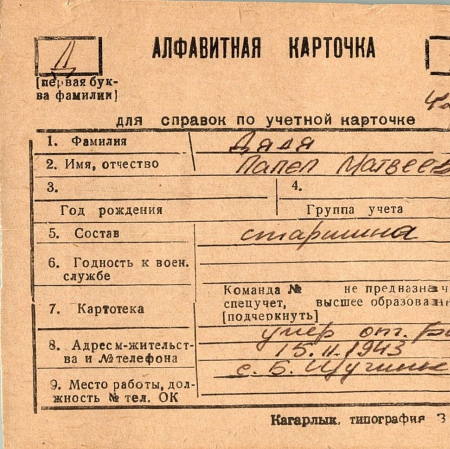 Д
АЛФАВИТНАЯ КАРТОЧКА
(первая бук-
ва фамилии)
для справок по учетной карточке
1. Фамилия Дядя
2. Имя, отчество Павел Матвеев
3. 4.
Год рождения Группа учета
5. Состав старшина
6. Годность к воен.
службе
Команда № не предназнач
7. Картотека спецучет, высшее образован
[подчеркнуть]
умер от
8. Адрес м-жительст-
ва и № телефона 15.11.1943
с. Б. Щучинк
9. Место работы, дол-
жность № тел. ОК
Кагарлык. типография З